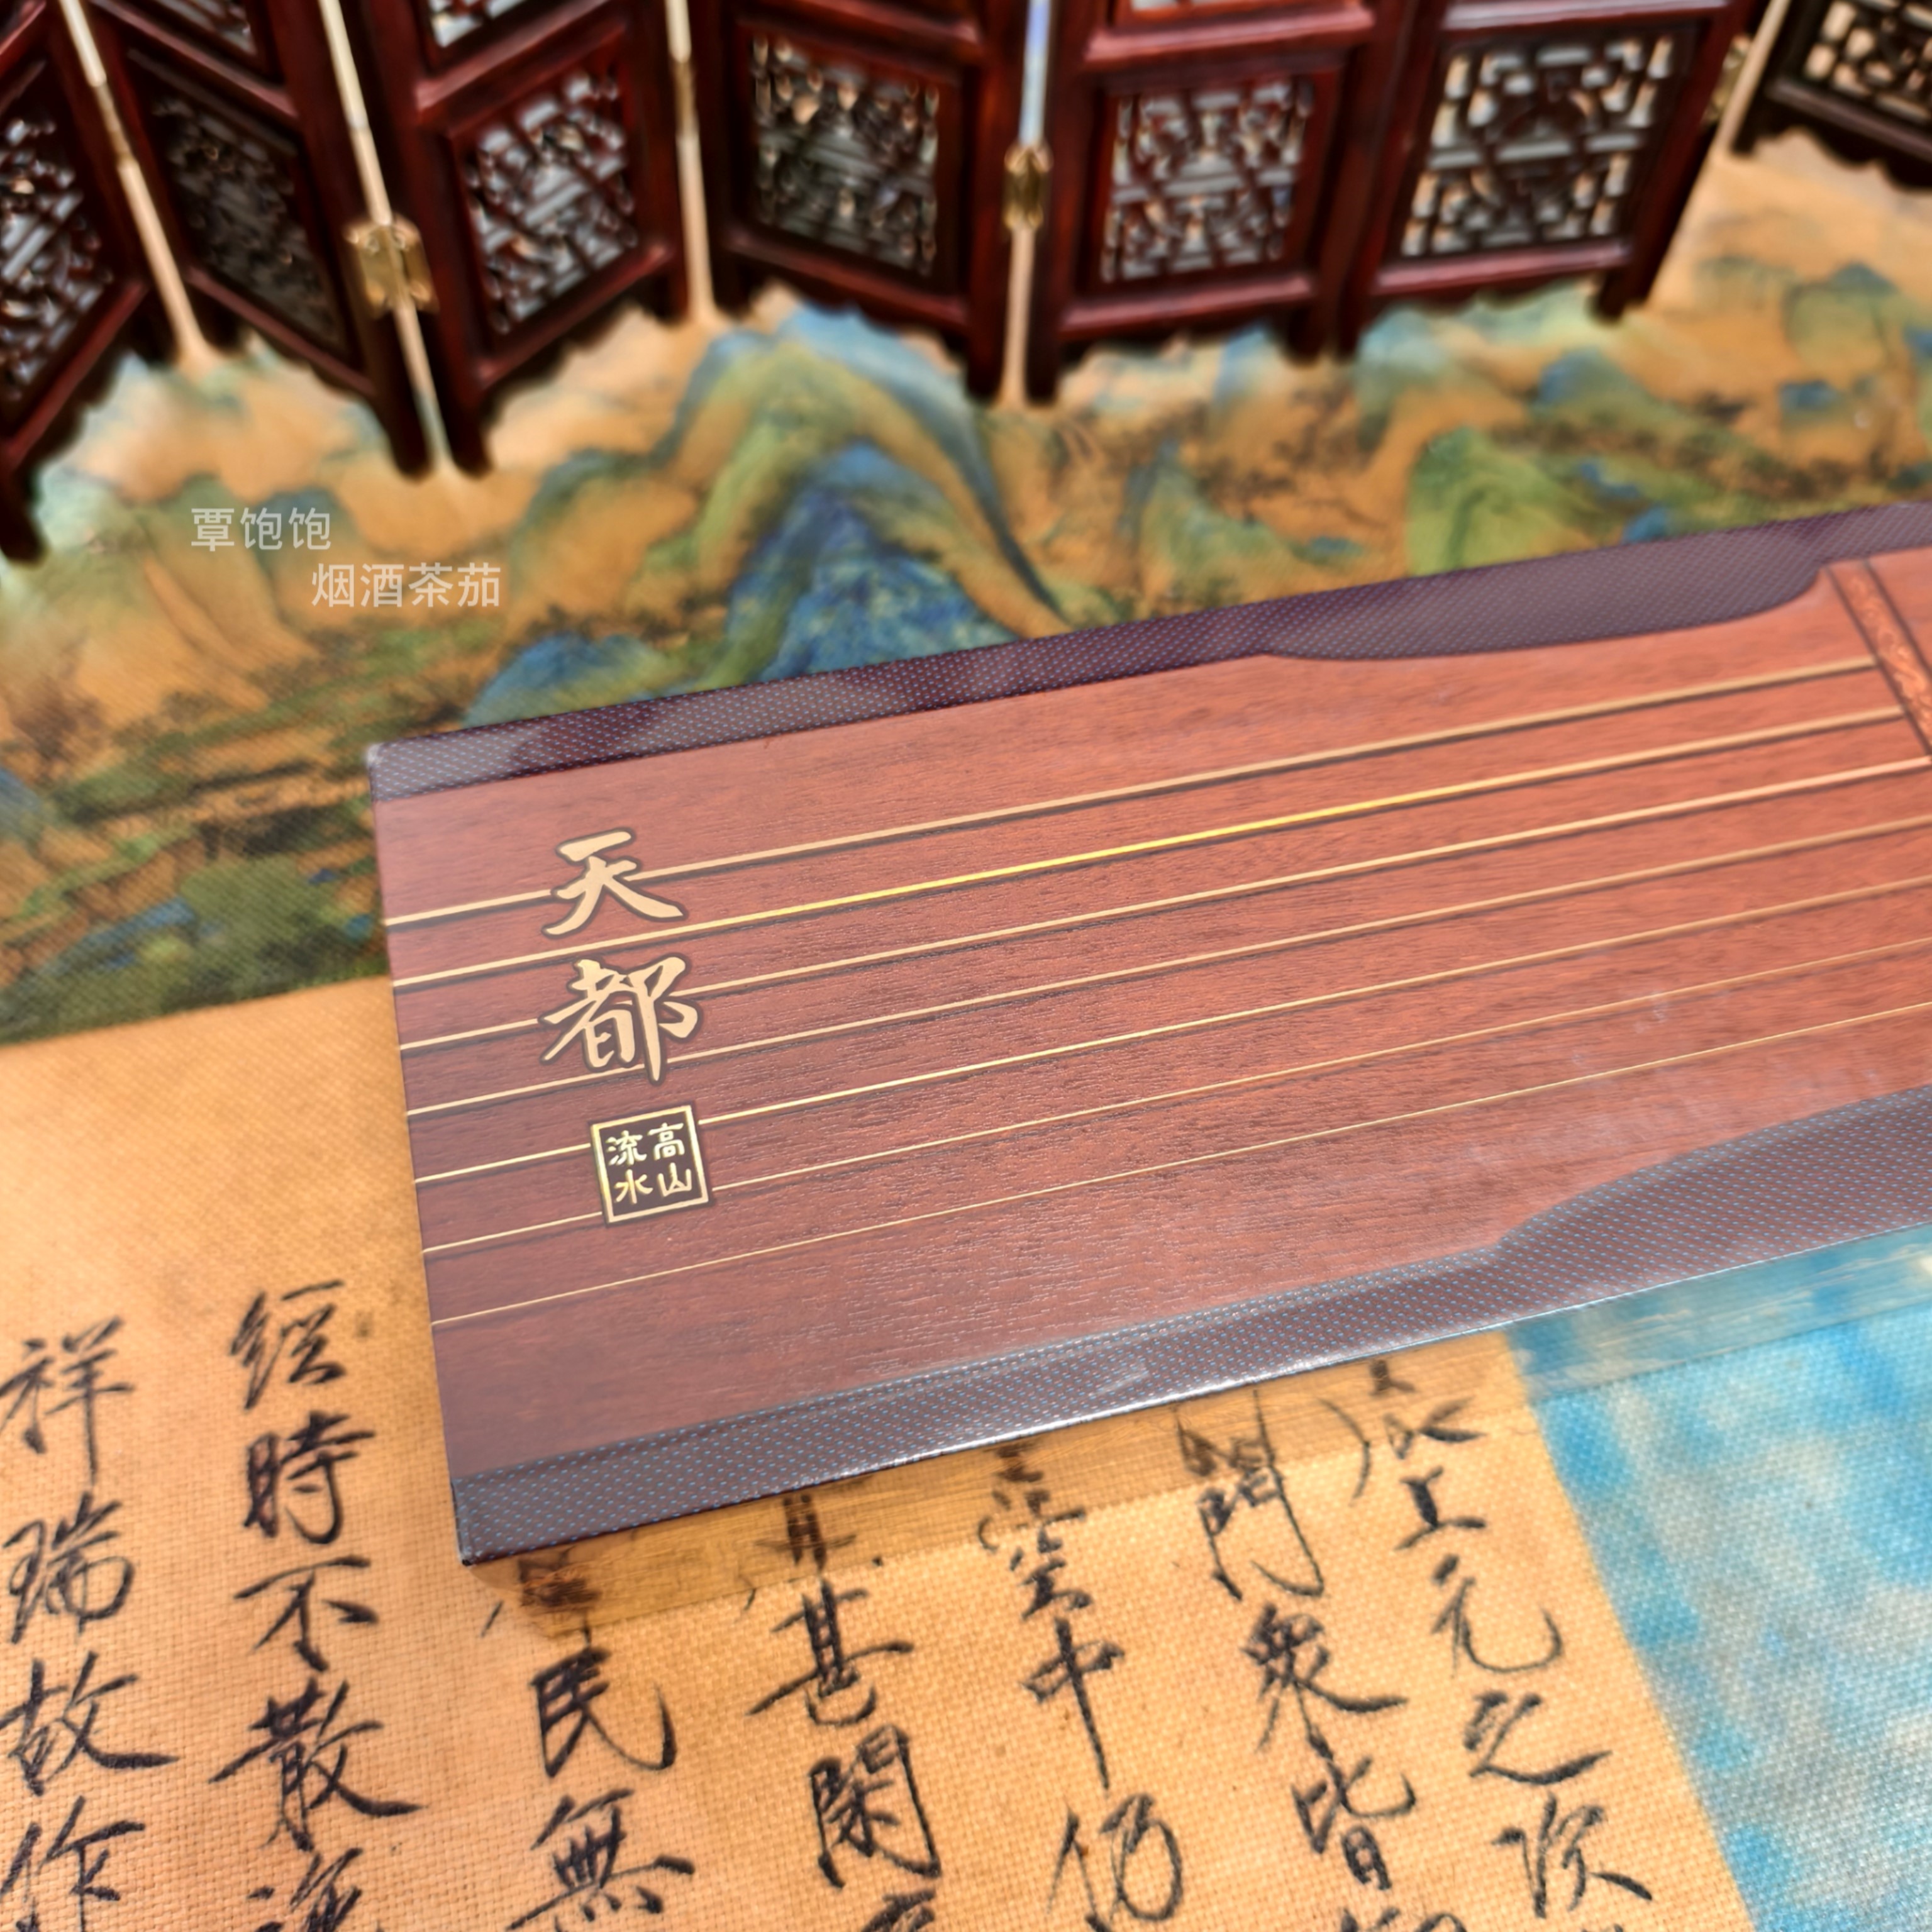 覃饱饱
烟酒茶茄
天都
高山
流水
上元之次
門衆皆
空中仍
甚閑
民無
經時不散
祥瑞故作